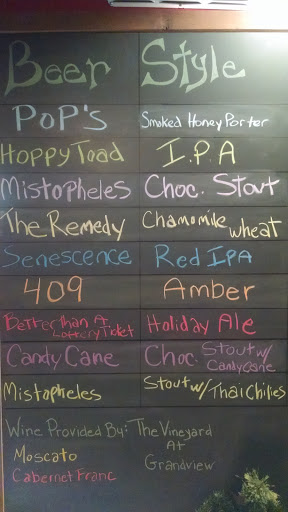 Beer Style
PoP's Smoked Honey Porter
Hoppy Toad I.P.A
Mistopheles Choc. Stout
The Remedy Chamomile Wheat
Senescence Red IPA
409 Amber
Better Than A Lottery Ticket Holiday Ale
Candy Cane Choc. Stout w/ Candy Cane
Mistopheles Stout w/ Thai Chilies
Wine Provided By: The Vineyard
At
Moscato Grandview
Cabernet Franc